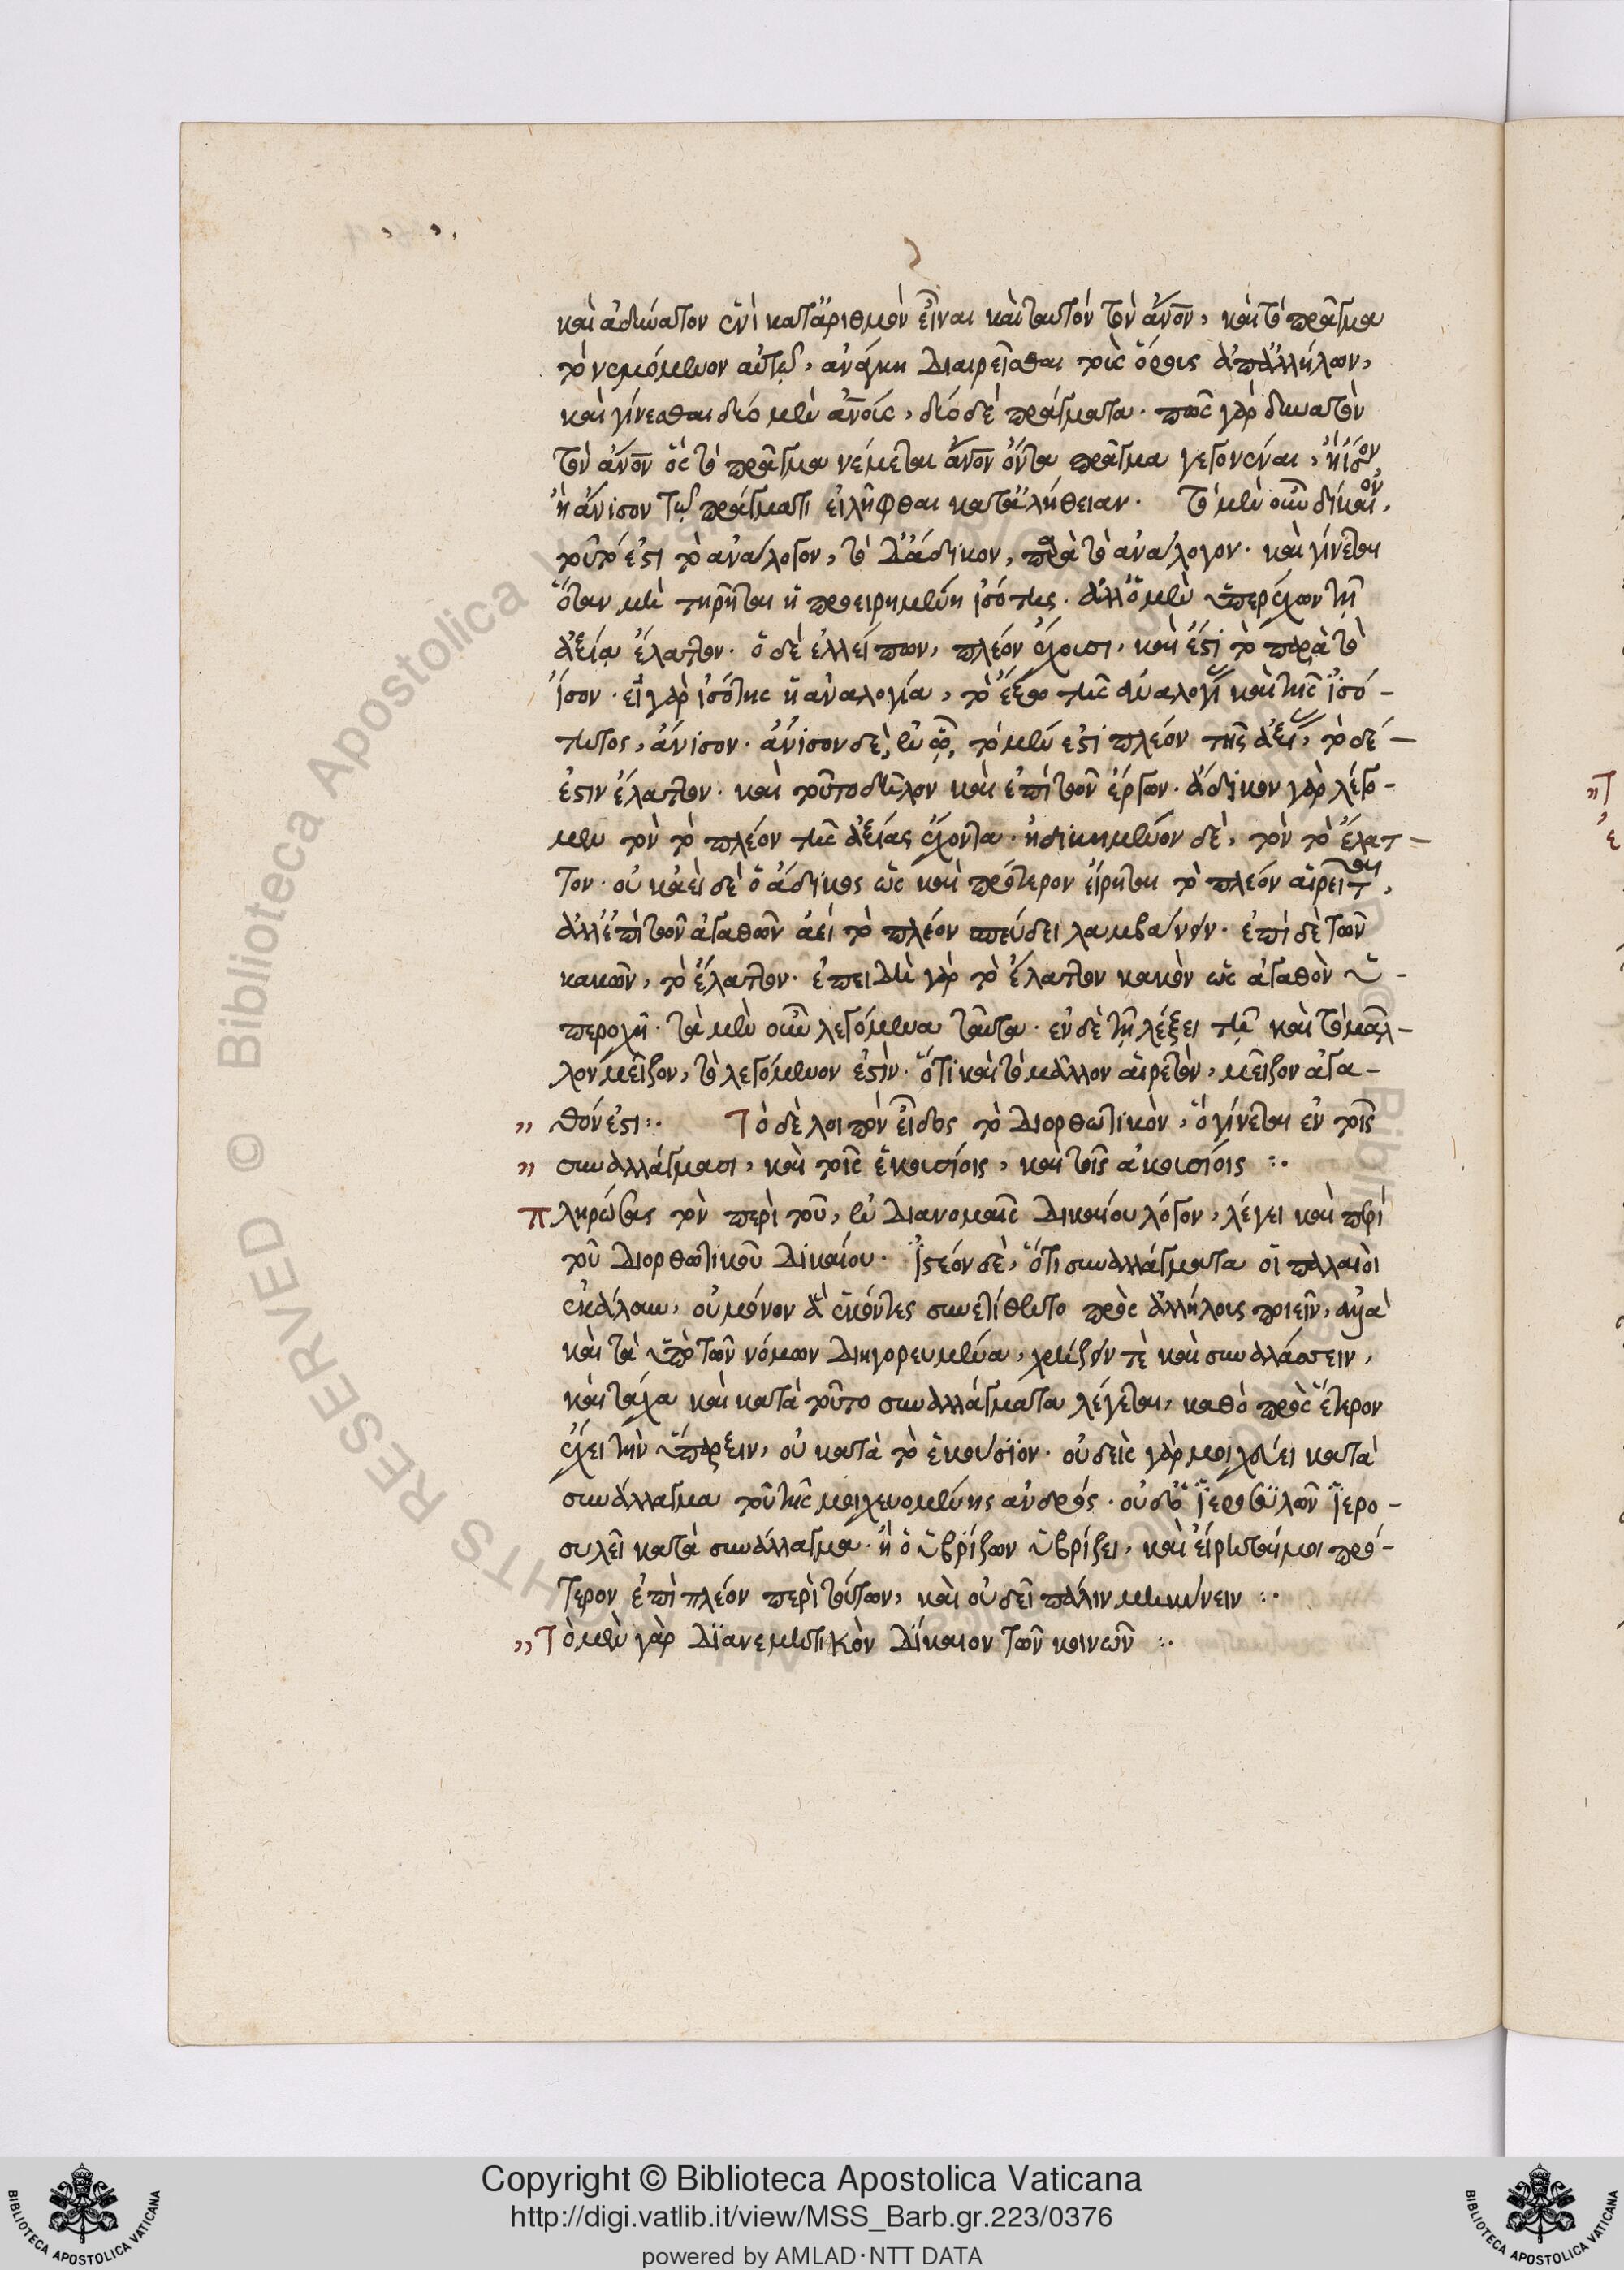 καὶ ἀδύνατον ἑνὶ κατἀριθμὸν εἶναι καὶ ταυτὸν τὸν ἄνον, καὶ τὸ πρᾶγμα
τὸ νεμόμενον αὐτῷ, ἀνάγκη διαιρεῖσθαι τοῖς ὅροις ἀπἀλλήλων,
καὶ γίνεσθαι δύο μὲν ἀνοις, δύο δὲ πράγματα. πῶς γὰρ δυνατὸν
τὸν ἄνον ὃς τὸ πρᾶγμα νέμεται ἄνον ὄντα πρᾶγμα γεγονέναι, ἢ ἴσον
ἢ ἄνισον τῷ πράγματι εἰλῆφθαι κατἀλήθειαν. τὸ μὲν οὖν δίκαιον,
τοῦτό ἐστι τὸ ἀνάλογον, τὸ δἄδικον, παρὰ τὸ ἀνάλογον. καὶ γίνεται
ὅταν μὴ τηρῆται ἡ προειρημένη ἰσότης. ἀλλὁ μὲν ὑπερέχων τῇ
ἀξίᾳ ἔλαττον. ὁ δὲ ἐλλείπων, πλέον ἔχουσι, καὶ ἔστι τὸ παρὰ τὸ
ἴσον. εἰ γὰρ ἰσότης ἡ ἀναλογία, τὸ ἔξω τῆς ἀναλογί καὶ τῆς ἰσό-
τητος, ἄνισον. ἄνισον δὲ, ἐν ᾧ, τὸ μέν ἐστι πλέον τῆς ἀξί, τὸ δέ-
ἐστιν ἔλαττον. καὶ τοῦτο δῆλον καὶ ἐπὶ τῶν ἔργων. ἄδικον γὰρ λέγο-
μεν τὸν τὸ πλέον τῆς ἀξίας ἔχοντα. ἠδικημένον δὲ, τὸν τὸ ἔλατ-
τον. οὐκ ἀεὶ δὲ ὁ ἄδικος ὡς καὶ πρότερον εἴρηται τὸ πλέον αἱρεῖται,
ἀλλἐπὶ τῶν ἀγαθῶν ἀεὶ τὸ πλέον σπεύδει λαμβάνειν. ἐπὶ δὲ τῶν
κακῶν, τὸ ἔλαττον. ἐπειδὴ γὰρ τὸ ἔλαττον κακὸν ὡς ἀγαθὸν ὑ-
περοχῆ. τὰ μὲν οὖν λεγόμενα ταῦτα. ἐν δὲ τῇ λέξει τῇ καὶ τὸ μᾶλ-
λον μεῖζον, τὸ λεγόμενον ἐστὶν. ὅτι καὶ τὸ μᾶλλον αἱρετὸν, μεῖζον ἀγα-
" θόν ἐστι:. Τὸ δὲ λοιπὸν εἶδος τὸ διορθωτικὸν, ὃ γίνεται ἐν τοῖς
" συναλλάγμασι, καὶ τοῖς ἑκουσίοις, καὶ τοῖς ἀκουσίοις :.
πληρώσας τὸν περὶ τοῦ, ἐν διανομαῖς δικαίου λόγον, λέγει καὶ περὶ
τοῦ διορθωτικοῦ δικαίου. ἰστέον δὲ, ὅτι συναλλάγματα οἱ παλαιοὶ
ἐκάλουν, οὐ μόνον ἃ ἑκόντες συνετίθεντο πρὸς ἀλλήλους ποιεῖν, ἀλλὰ
καὶ τὰ ὑπὸ τῶν νόμων διηγορευμένα, χρήζειν τὲ καὶ συναλλάσσειν,
καὶ τάχα καὶ κατὰ τοῦτο συναλλάγματα λέγεται, καθὸ πρὸς ἕτερον
ἔχει τὴν ὕπαρξιν, οὐ κατὰ τὸ ἑκούσιον. οὐδεὶς γὰρ μοιχεύει κατὰ
συνάλλαγμα τοῦ τῆς μοιχευομένης ἀνδρός. οὐδὁ ἱεροσυλῶν ἱερο-
συλεῖ κατὰ συνάλλαγμα. ἢ ὁ ὑβρίζων ὑβρίζει, καὶ εἴρηταί μοι πρό-
τερον ἐπὶ πλέον περὶ τούτων, καὶ οὐ δεῖ πάλιν μηκύνειν :.
" Τὸ μὲν γὰρ διανεμητικὸν δίκαιον τῶν κοινῶν :.
Copyright © Biblioteca Apostolica Vaticana
http://digi.vatlib.it/view/MSS_Barb.gr.223/0376
powered by AMLAD·NTT DATA